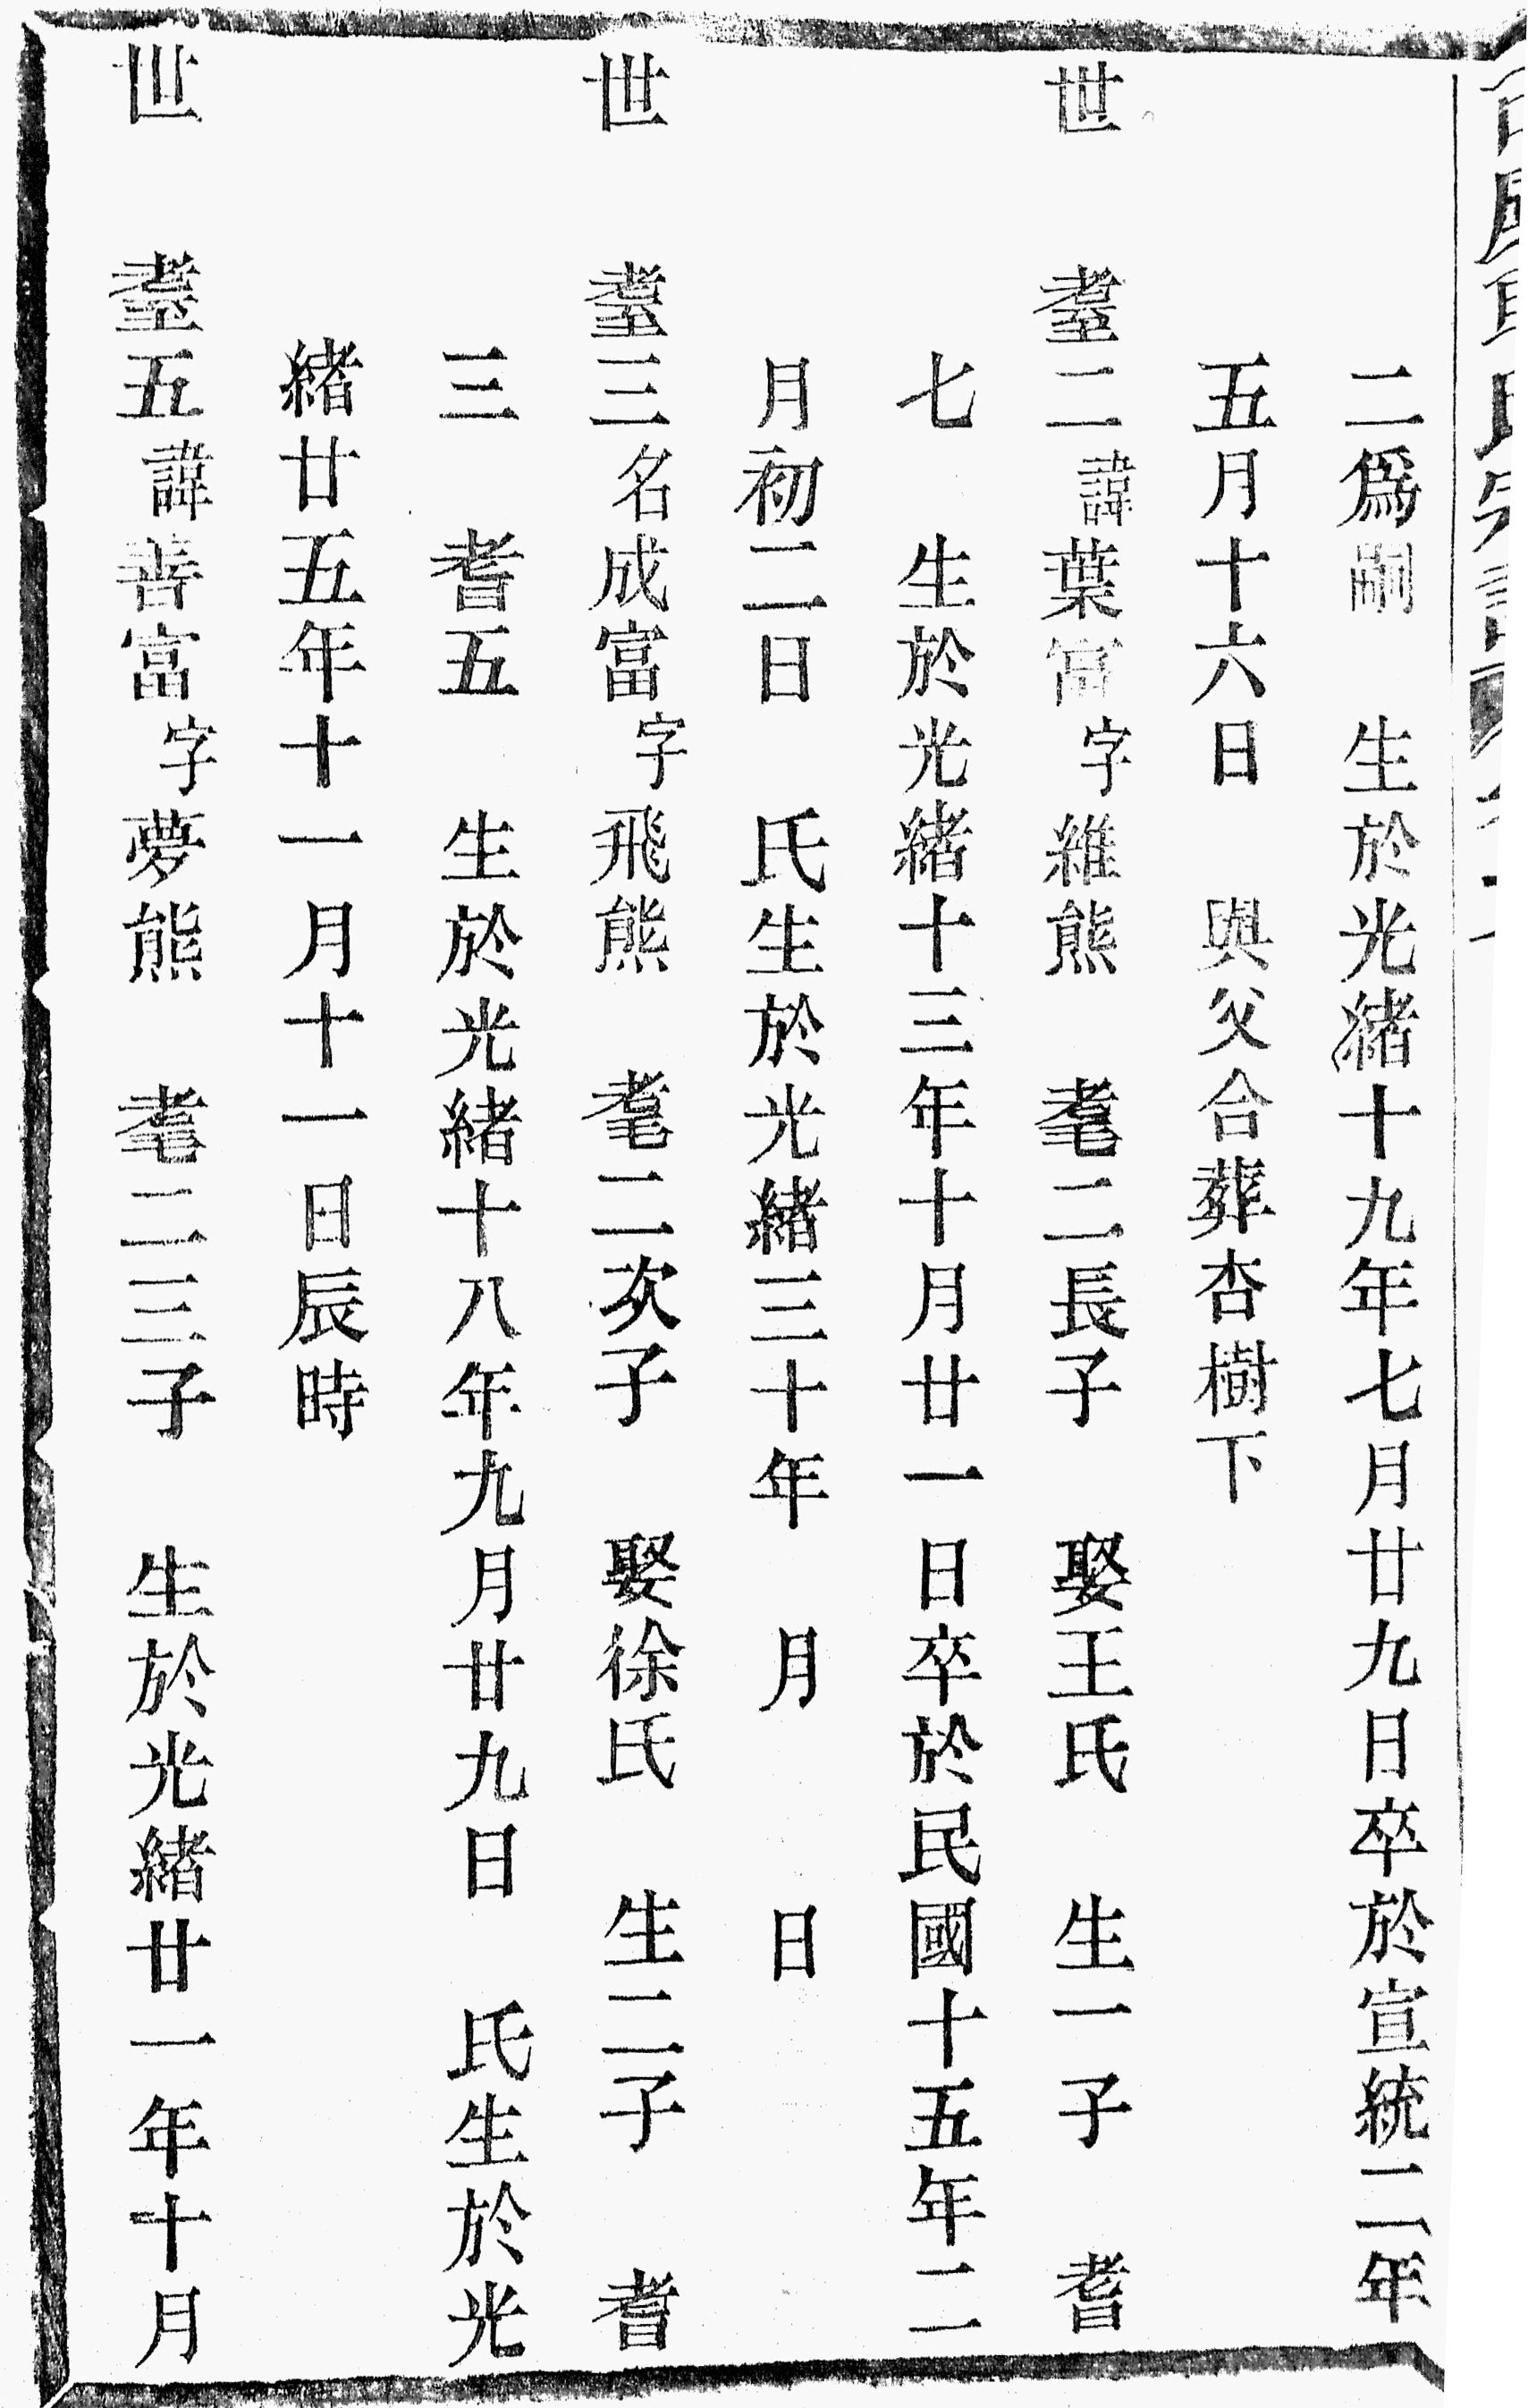 二爲嗣　生於光緒十九年七月廿九日卒於宣統二年
五月十六日　與父合葬杏樹下
世　耋二諱葉富字維熊　耄二長子　娶王氏　生一子　耆
七　生於光緒十三年十月廿一日卒於民國十五年二
月初二日　氏生於光緒三十年　月　　日
世　耋三名成富字飛熊　耄二次子　娶徐氏　生二子　耆
三　耆五　生於光緒十八年九月廿九日　氏生於光
緒廿五年十一月十一日辰時
世　耋五諱善富字夢熊　耄二三子　生於光緒廿一年十月